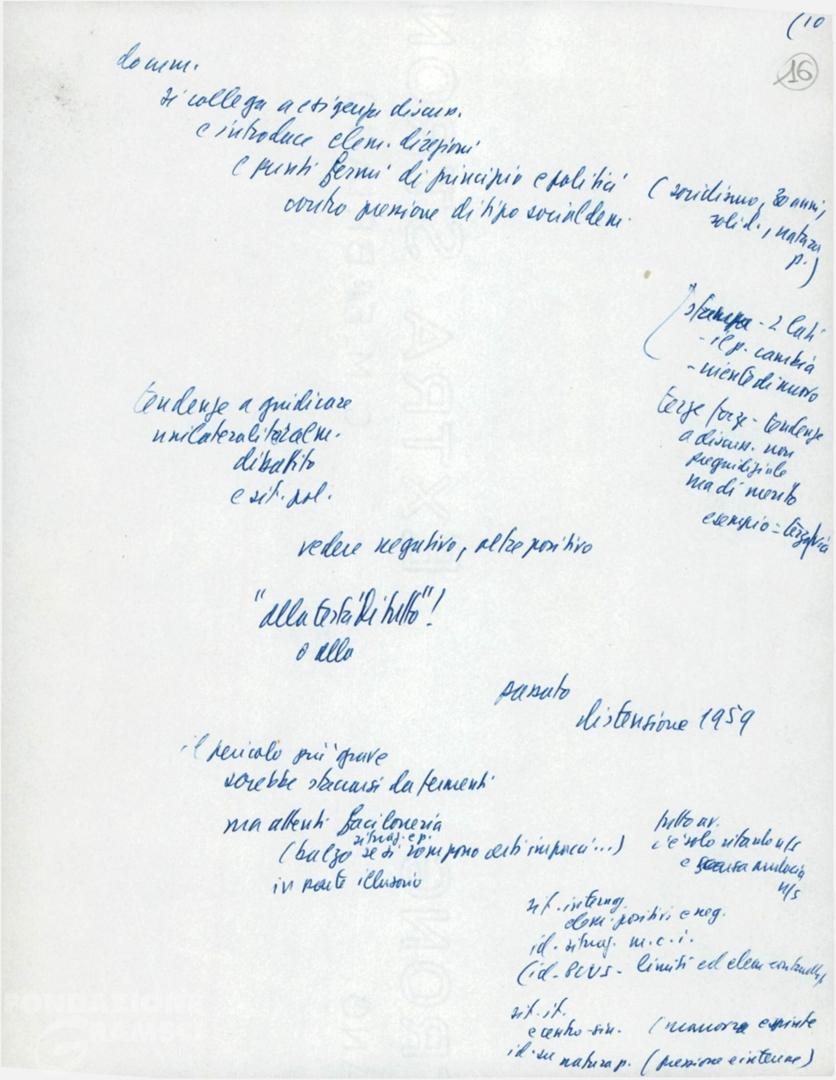 (10
16
docum.
si collega a esigenza discuss.
e introduce elem. direzioni
e punti fermi di principio e politici (soridismo, 30 anni,
contro pressione di tipo socialdem. solid., natura
p.)
stampa - 2 lati
- il p. cambia
- niente di nuovo
terze forze - tendenze
a discuss. non
pregiudiziale
ma di merito
esempio = terza via
tendenze a giudicare
unilateralità al m.
dibattito
e sit. pol.
vedere negativo, oltre positivo
"alla testa di tutto"!
o alla
passato
distensione 1959
il pericolo più grave
sarebbe staccarsi da fermenti
ma attenti faciloneria
situaz. e p.
(balzo se si rompono certi impacci...)
in parte illusorio
tutto av.
c'è solo ritardo n/s
e
n/s
sit. internaz.
elem. positivi e neg.
id. situaz. m. c. i.
(id. PCUS - limiti ed elem.
sit. it.
e centro-sin. (manovra e spinte
id. su natura p. (pressione e interne)
FONDAZIONE